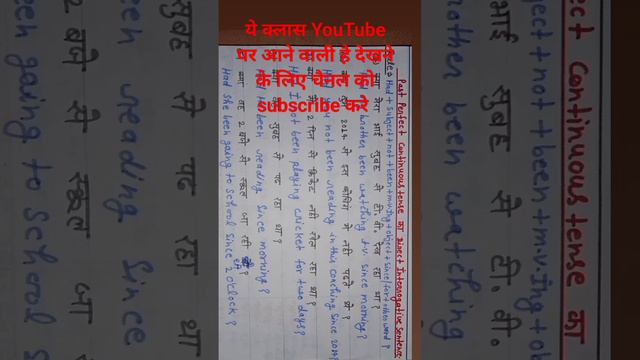 ये क्लास YouTube
पर आने वाली हे देखने
के लिए चैनल को
subscribe करे
Past Perfect Continuous tense का Direct Interrogative Sentence
Had + subject + not + been + m.v.ing + object + since/for + other word ?
मेरा भाई सुबह से टी.वी. देख रहा था ?
brother been watching t.v since morning?
2014 से इस कोचिंग में नहीं पढ़ते थे ?
not been reading in this coaching since 2014?
2 दिन से क्रिकेट नहीं खेल रहा था ?
Had I not been playing cricket for two days?
सुबह से पढ़ रहा था ?
been reading since morning?
क्या वह 2 बजे से स्कूल जा रही थी ?
Had she been going to school since 2 o'clock ?
ect continuous tense का
ject + not + been + m.v.ing + o
भाई सुबह से टी.वी.
brother been watching
सुबह से पढ़ रहा था
been reading since
2 बजे से स्कूल जा
been going to school s